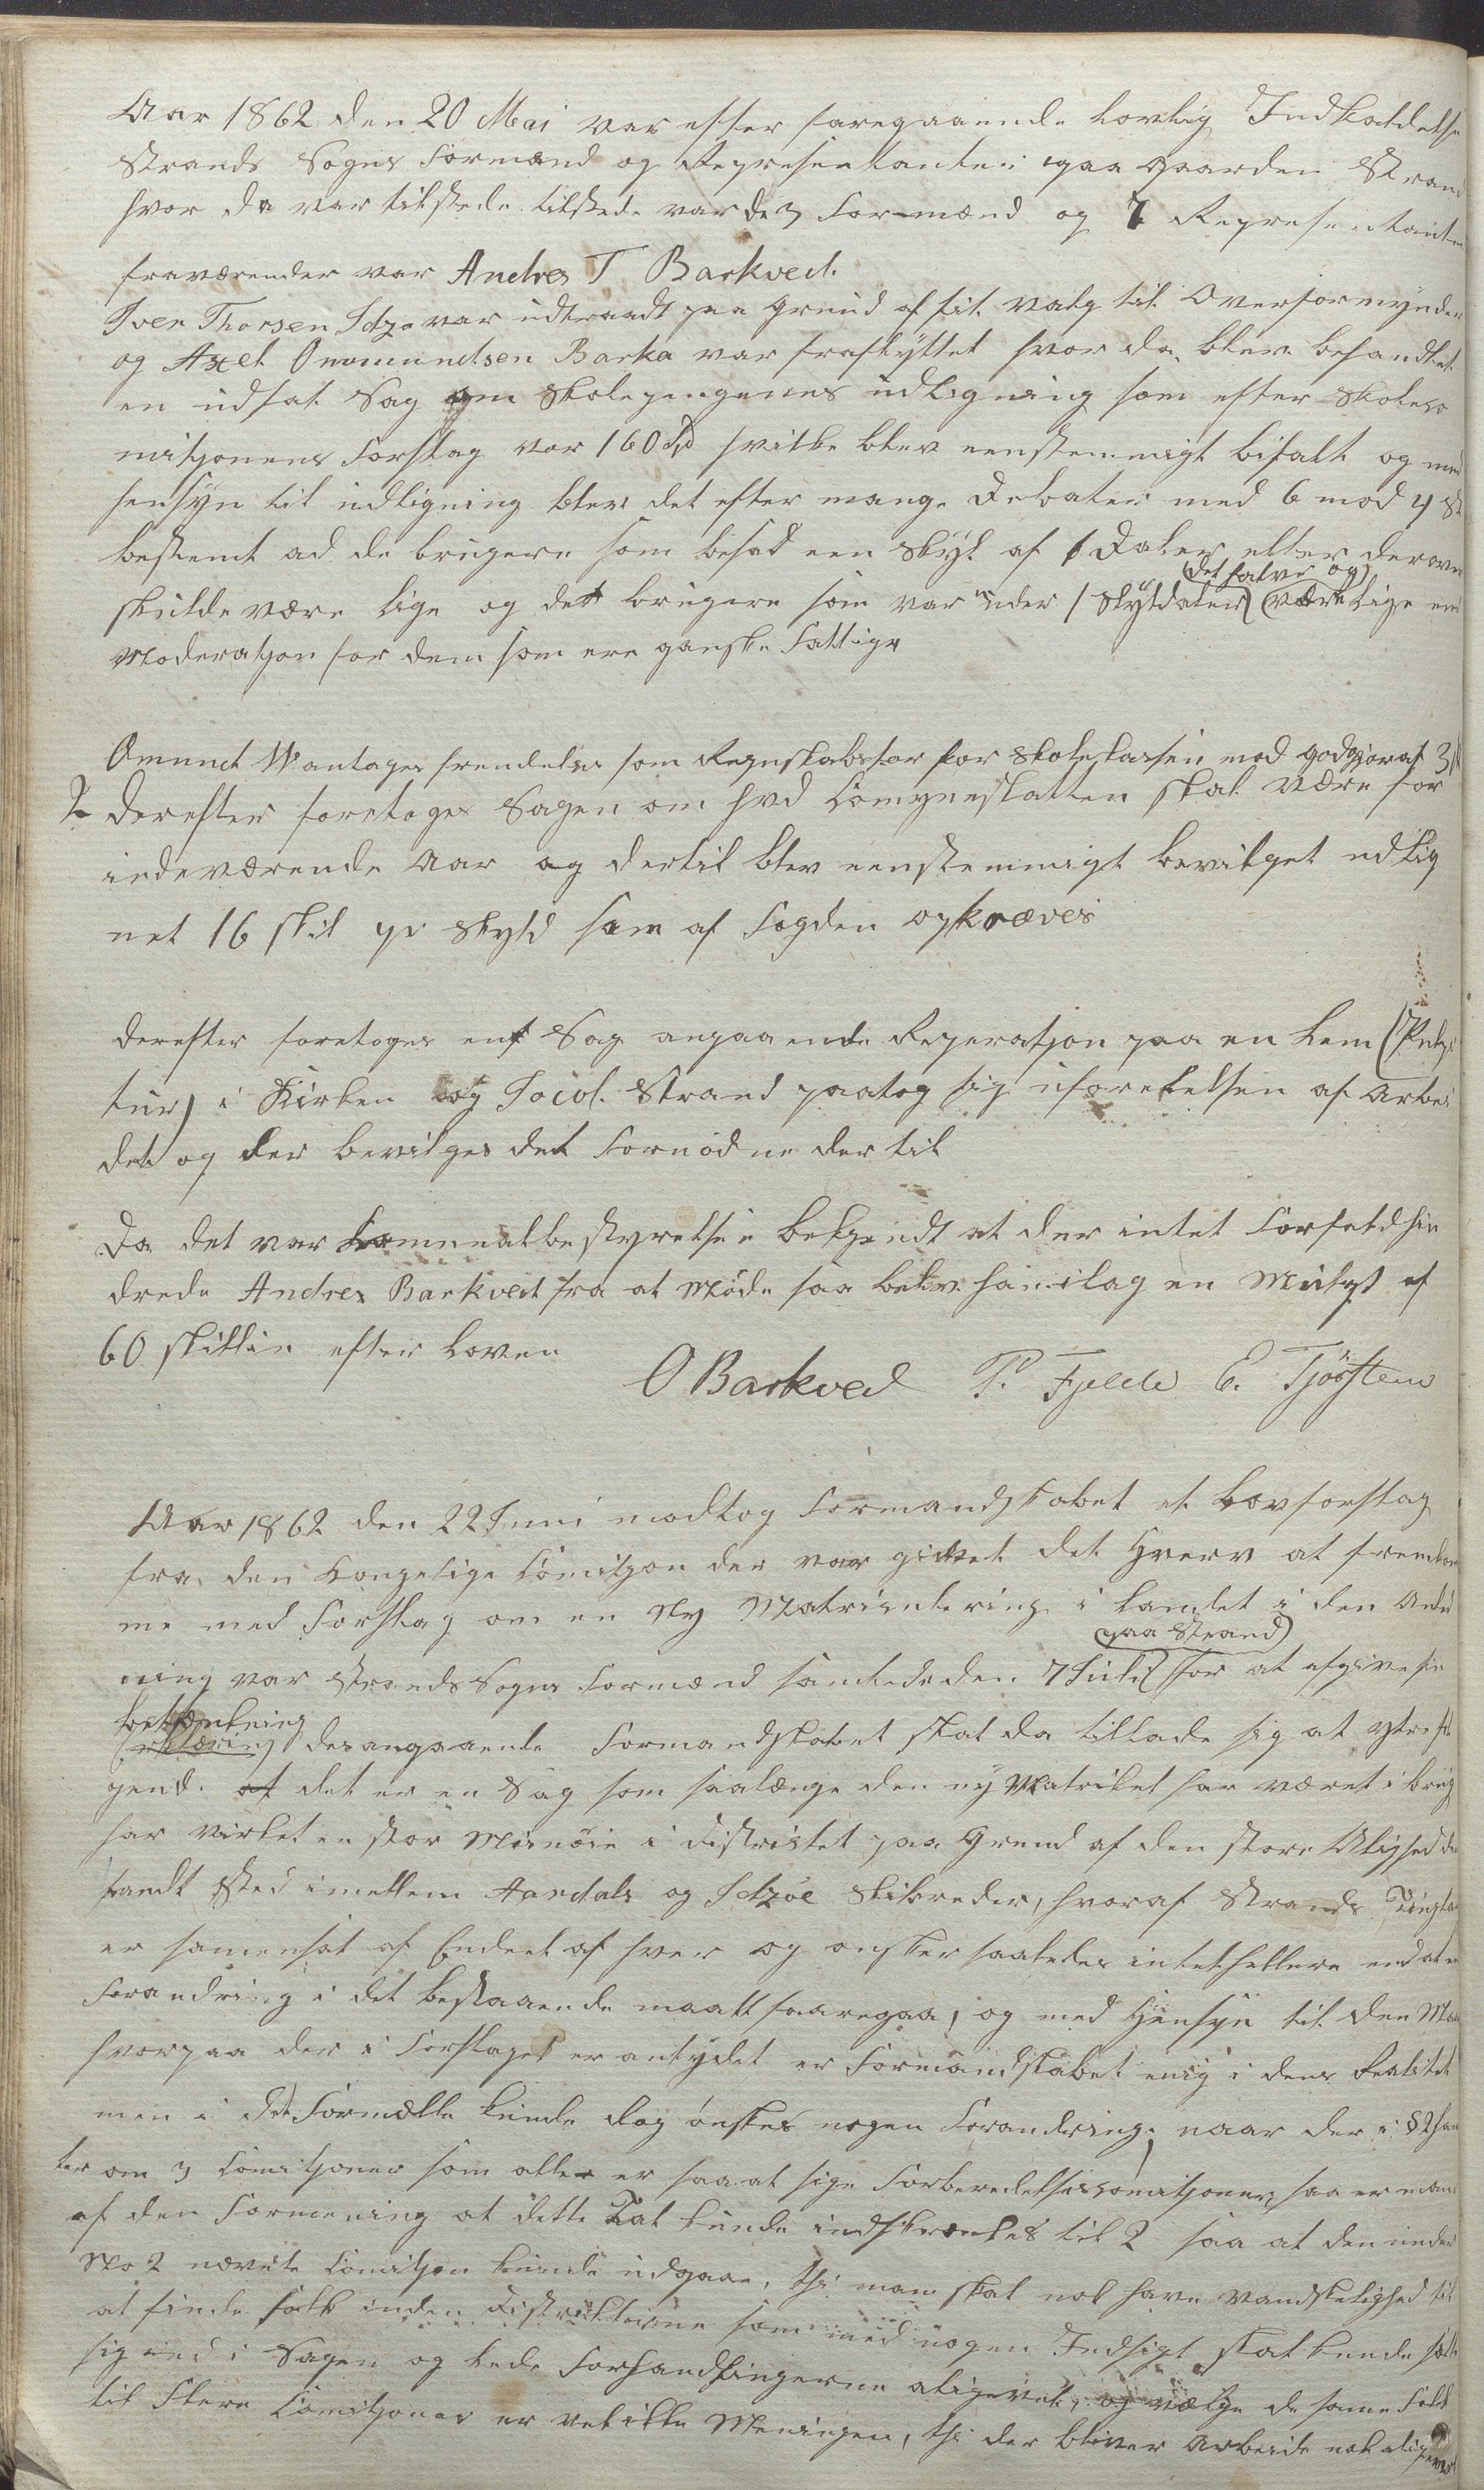 Aar 1862 den 20 Mai var efter foregaaende lovlig Indkaldelse
Strands Sogns Formænd og Representanter paa Gaarden Strand
hvor da var tilstede tilstede var de 3 Formænd og 7 Representanter
fraværender var Andres T Barkved.
Iver Thorsen Idzø var udtraadt paa Grund af sit valg til Overformynder
og Axel Omundsen Barka var fraflyttet hvor da blev behandlet
en udsat Sag om Skolepengenes udligning som efter Skoleko
mitjonens Forslag var 160 Spd hvilke blev eenstemmigt bifalt og med
hensyn til udligning blev det efter mange Debater med 6 mod 4 St
bestemt ad de brugere som besad een Skyl af 1 Daler eller derover
(det halve og)
skulde være lige og det brugere som var under 1 Skyldaler (være lige med
Moderatjon for dem som ere ganske Fattige
Omund W antages fremdeles som Regnskabsfør for Skolekassen mod godgjørelse 3
2 derefter foretoges Sagen om hvad Comuneskatten skal være for
indeværende Aar og dertil blev eenstemmigt bevilget udlig
net 16 skil pr Skyld som af Fogden opkræves
derefter foretoges en Sag angaaende Reperatjon paa en Lem (Pulpi
tur) i Kirken og Strand paatog sig udførelsen af Arbei
det og der bevilges det Fornødne der til
Da det var Komunalbestyrelsen bekjendt at der intet Forfald hin
drede Andres Barkved fra at Møde saa blev ham ilag en Mulgt af
60 skillin efter Loven
O Barkved P. Fjelde E. Tjøstem
Aar 1862 den 22 Juni modtog Formandskabet et Lovforslag
fra den Kongelige Comitjon der var givet det Hverv at fremkom
me med Forslag om en Ny Matriculering i Landet i den Anled
(paa Strand)
ning var Strands Sogns Formænd samlede den 7 Juli for at afgive sin
betænkning
(erklæring) desangaaende Formandskabet skal da tillade sig at ytre føl
gende at det er en Sag som saalænge den ny Matrikel har været i brug
har virket en stor Misnøie i Districtet paa Grund af den store Ulighed der
fandt Sted imellem Aardals og Idzøe Skibreder, hvoraf Strands Tinglag
er samensat af Endeel af hver og ønsker saaledes intet hellere end at en
Forandring i det bestaaende maatte foregaa, og med Hensyn til den Maade
hvorpaa der i Forslaget er antydet er Formandskabet enig i dens Realitet
men i det Formelle kunde dog ønskes nogen Forandring; naar der i § 2 han
les om 3 Comitjoner som alle er saa at sige Forberedelsescomitjoner, saa er man
af den Formening at dette Tal kunde indskrænkes til 2 saa at den under
No 2 nævnte Comitjon kunde udgaae, thi man skal nok have Vanskelighed til
at finde Folk inden Districterne som med nogen Indsigt skal kunde sætte
sig ind i Sagen og lede Forhandlingerne aligevel, og vælge de samme Folk
til Flere Comitjoner er vel ikke Meningen, thi der bliver Arbeide nok aligevel